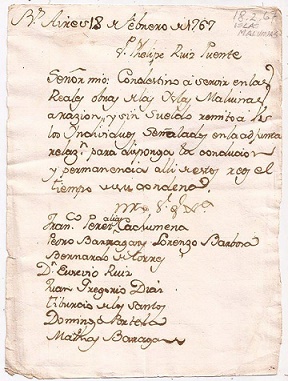 Bs Aires 18 de Febrero de 1767
18.2.67
ISLAS
MALVINAS
Sr Phelipe Ruiz Puente
Señor mio: Con destino a servir en las
Reales obras de las Yslas Malvinas
a razion, y sin sueldo remito a los
los Yndividuos Señalados en la adjunta
relazn para disponga la conducion
y permanencia alli de estos por el
tiempo de su condena.
Franco Perez alias Cachumena
Pedro Barragan y Lorenzo Barbora
Bernardo de torres
Dn Eusevio Ruiz
Juan Gregorio Diaz
Tiburcio de los Santos
Domingo Portela
Mathias Barragan